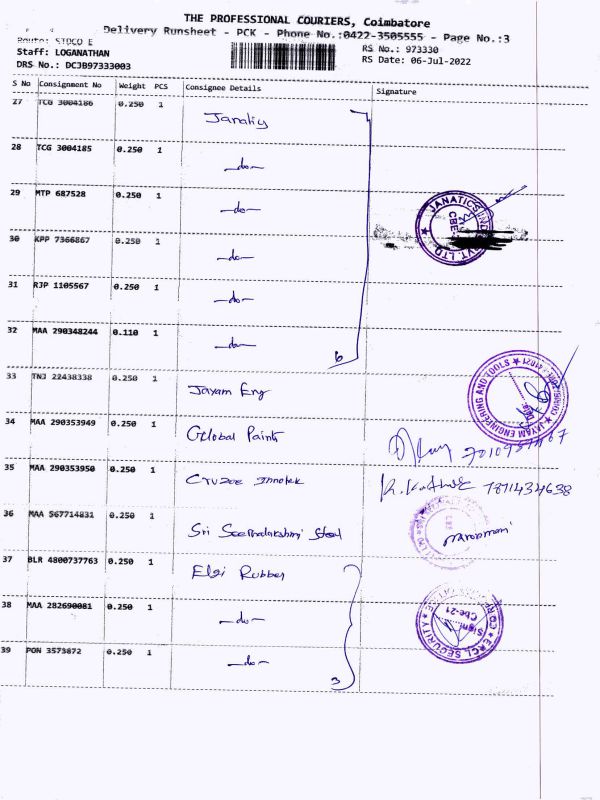 THE PROFESSIONAL COURIERS, Coimbatore
Delivery Runsheet - PCK - Phone No.:0422-3505555 - Page No.:3
Route: SIDCO E
Staff: LOGANATHAN
DRS No.: DCJB97333003
RS No.: 973330
RS Date: 06-Jul-2022
S No Consignment No Weight PCS Consignee Details Signature
27 TCG 3004186 0.250 1 Janatiy
28 TCG 3004185 0.250 1 -do-
29 MTP 687528 0.250 1 -do-
JANATICS
CBE-
PVT. LTD
30 KPP 7366867 0.250 1 -do-
31 RJP 1105567 0.250 1 -do-
32 MAA 290348244 0.110 1 -do-
6
33 TNJ 22438338 0.250 1 Jayam Eng
JAYAM ENGINEERING AND TOOLS
34 MAA 290353949 0.250 1 Global Paints
35 MAA 290353950 0.250 1 Cruzee Innotek
7871434638
36 MAA 567714831 0.250 1 Sri Seethalakshmi Steel
37 BLR 4800737763 0.250 1 Elgi Rubber
38 MAA 282690081 0.250 1 -do-
ERCL SECURITY
Sign:
Cbe-21
39 PON 3573872 0.250 1 -do-
3